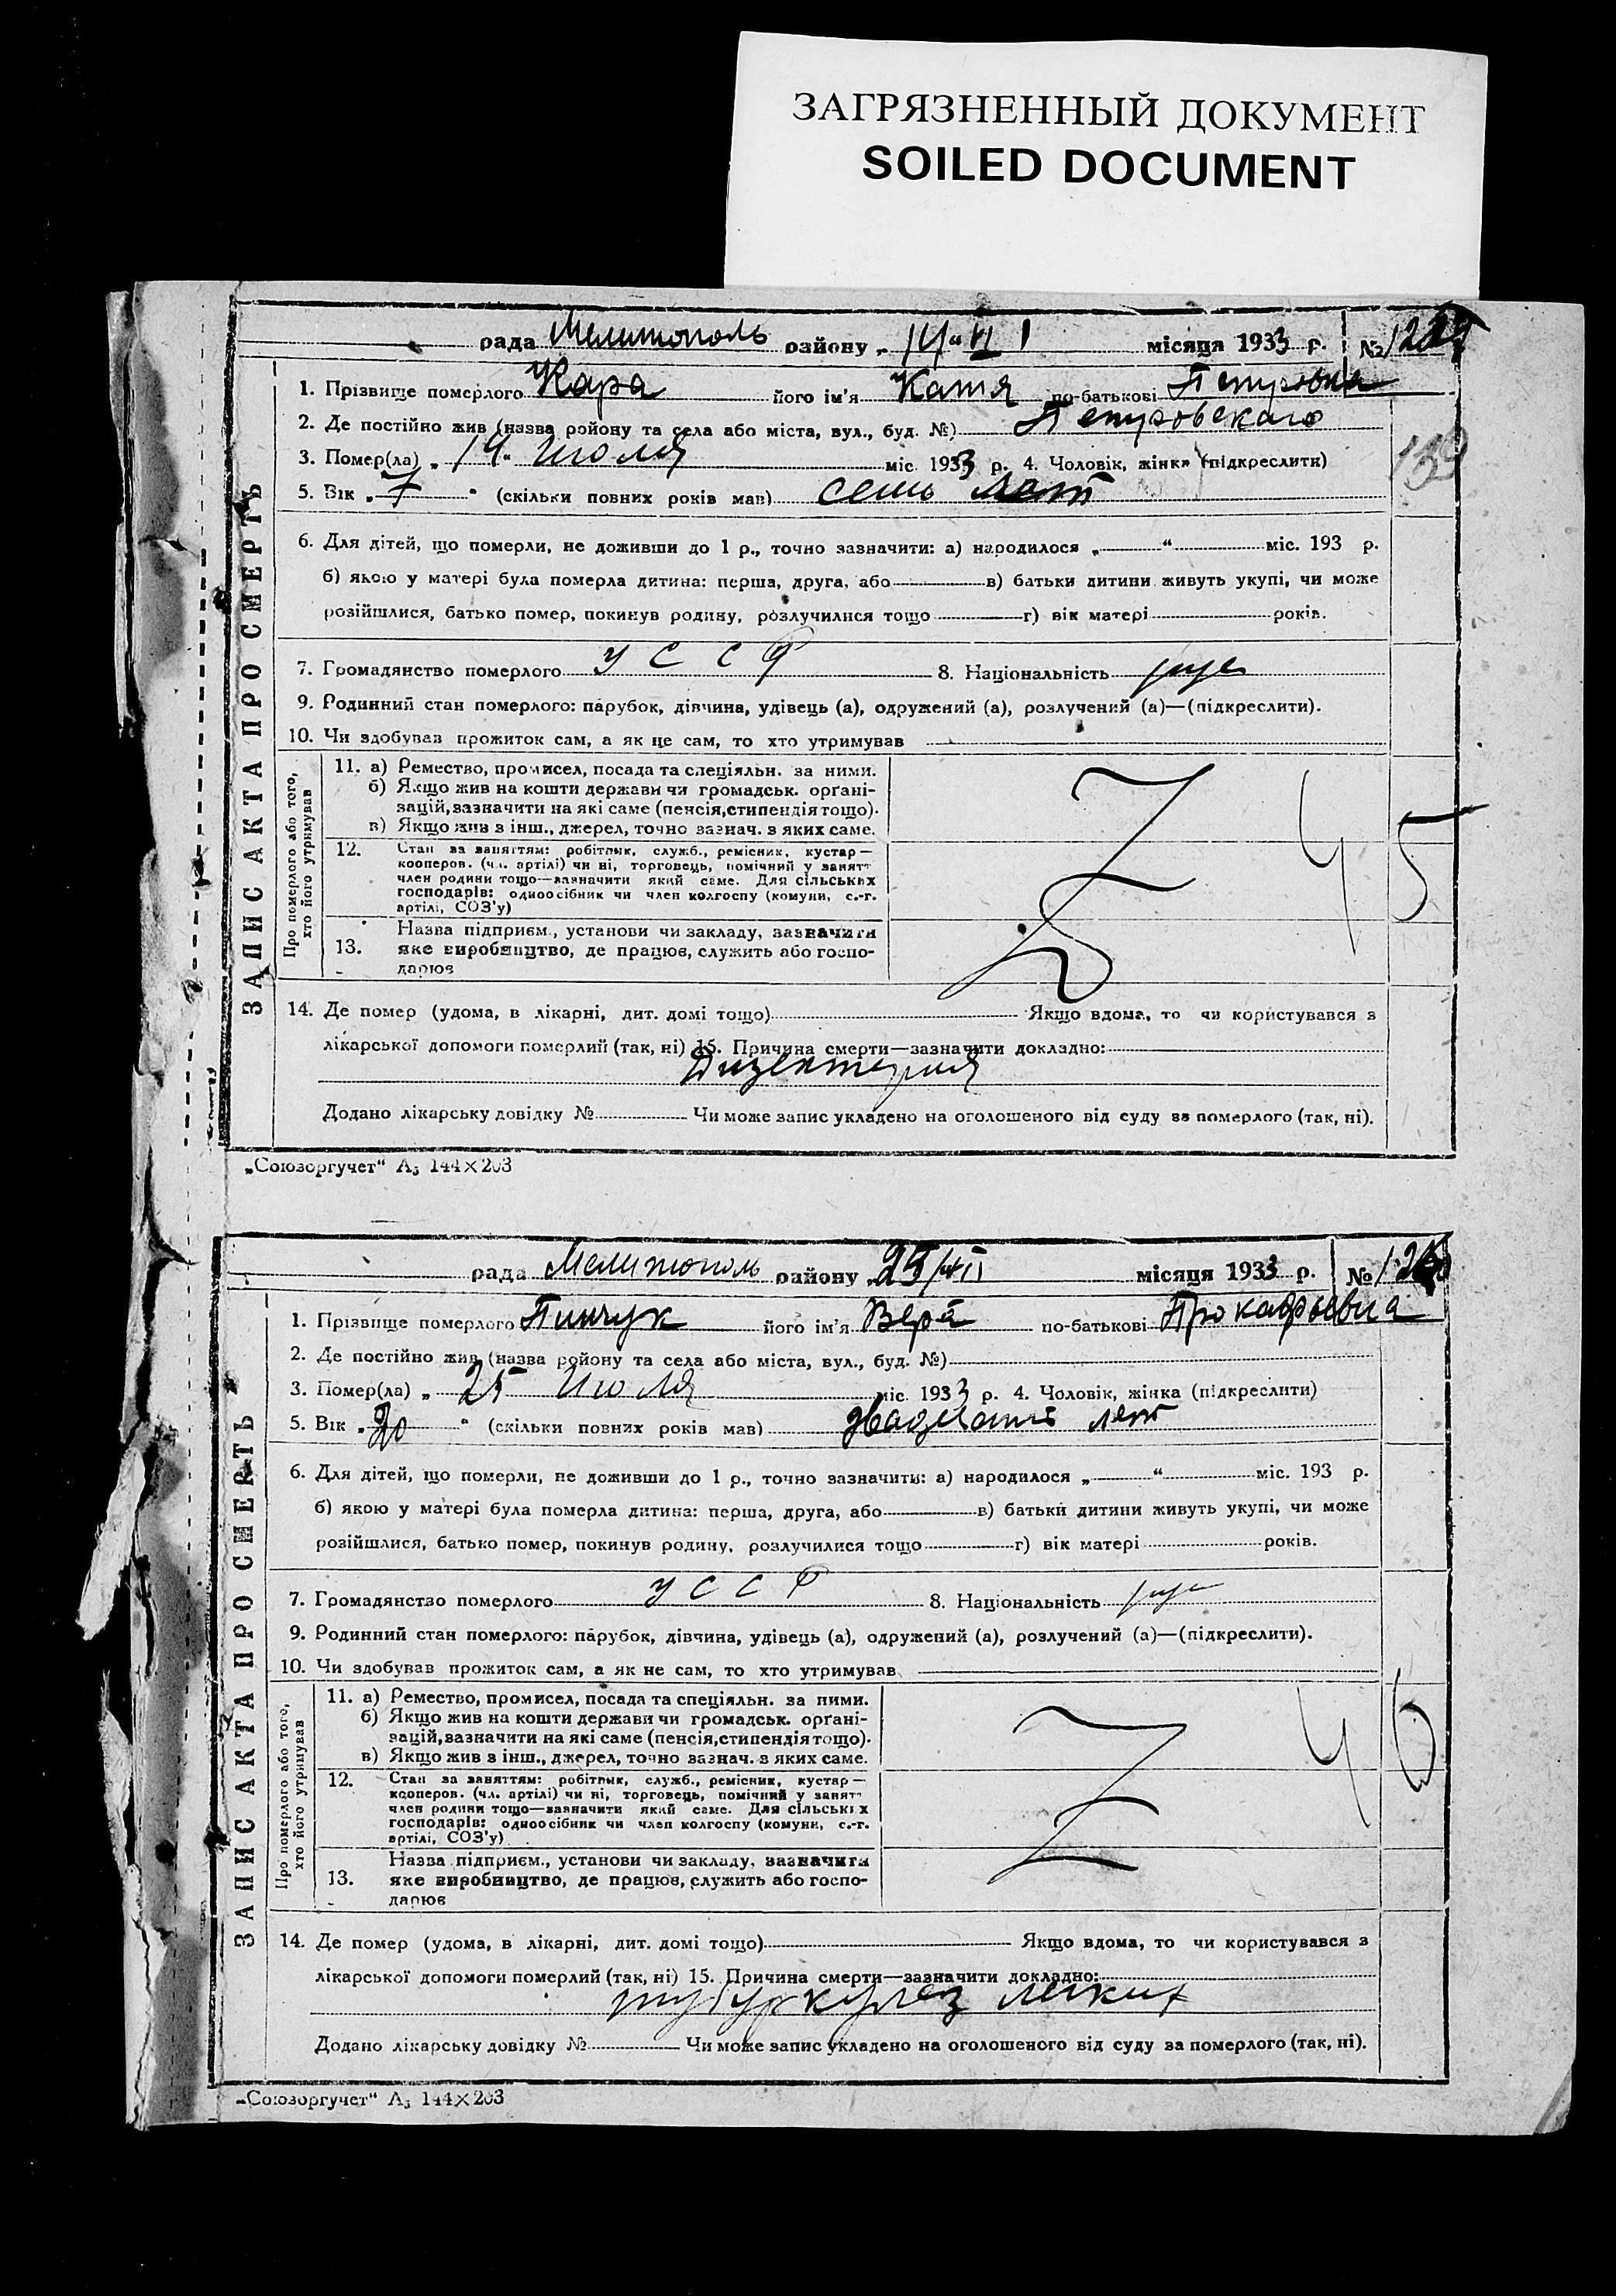 ЗАГРЯЗНЕННЫЙ ДОКУМЕНТ
SOILED DOCUMENT
рада Мелитополь району „14“ VII місяця 1933 р. №
1. Прізвище померлого Кара його ім'я Катя по-батькові Петровна
2. Де постійно жив (назва району та села або міста, вул., буд. №) Петровскаго
3. Помер(ла) „14“ Июля міс. 1933 р. 4. Чоловік, жінка (підкреслити)
139
5. Вік „7“ (скільки повних років мав) семь лет
6. Для дітей, що померли, не доживши до 1 р., точно зазначити: а) народилося „ “ міс. 193 р.
б) якою у матері була померла дитина: перша, друга, або в) батьки дитини живуть укупі, чи може
розійшлися, батько помер, покинув родину, розлучилися тощо г) вік матері років.
7. Громадянство померлого У С С Р 8. Національність рус
9. Родинний стан померлого: парубок, дівчина, удівець (а), одружений (а), розлучений (а)—(підкреслити).
10. Чи здобував прожиток сам, а як не сам, то хто утримував
ЗАПИС АКТА ПРО СМЕРТЬ
Про померлого або того,
хто його утримував
11. а) Ремество, промисел, посада та спеціяльн. за ними.
б) Якщо жив на кошти держави чи громадськ. орґані-
зацій, зазначити на які саме (пенсія, стипендія тощо).
в) Якщо жив з інш., джерел, точно зазнач. з яких саме.
4 5
12. Стан за заняттям: робітник, служб., ремісник, кустар—
кооперов. (чл. артілі) чи ні, торговець, помічний у занят-
член родини тощо—зазначити який саме. Для сільських
господарів: одноосібник чи член колгоспу (комуни, с.-г.
артілі, СОЗ'у)
13. Назва підприєм., установи чи закладу, зазначити
яке виробництво, де працює, служить або госпо-
дарює
14. Де помер (удома, в лікарні, дит. домі тощо) Якщо вдома, то чи користувався з
лікарської допомоги померлий (так, ні) 15. Причина смерти—зазначити докладно:
Дизентерия
Додано лікарську довідку № Чи може запис укладено на оголошеного від суду за померлого (так, ні).
„Союзоргучет“ А₃ 144×203
рада Мелитополь району „25/VII місяця 1933 р. №
1. Прізвище померлого Пинчук його ім'я Вера по-батькові Прокофьевна
2. Де постійно жив (назва району та села або міста, вул., буд. №)
3. Помер(ла) „25 Июля міс. 1933 р. 4. Чоловік, жінка (підкреслити)
5. Вік „20“ (скільки повних років мав) двадцать лет
6. Для дітей, що померли, не доживши до 1 р., точно зазначити: а) народилося „ “ міс. 193 р.
б) якою у матері була померла дитина: перша, друга, або в) батьки дитини живуть укупі, чи може
розійшлися, батько помер, покинув родину, розлучилися тощо г) вік матері років.
7. Громадянство померлого У С С Р 8. Національність рус
9. Родинний стан померлого: парубок, дівчина, удівець (а), одружений (а), розлучений (а)—(підкреслити).
10. Чи здобував прожиток сам, а як не сам, то хто утримував
ЗАПИС АКТА ПРО СМЕРТЬ
Про померлого або того,
хто його утримував
11. а) Ремество, промисел, посада та спеціяльн. за ними.
б) Якщо жив на кошти держави чи громадськ. орґані-
зацій, зазначити на які саме (пенсія, стипендія тощо).
в) Якщо жив з інш., джерел, точно зазнач. з яких саме.
4 6
12. Стан за заняттям: робітник, служб., ремісник, кустар—
кооперов. (чл. артілі) чи ні, торговець, помічний у занят-
член родини тощо—зазначити який саме. Для сільських
господарів: одноосібник чи член колгоспу (комуни, с.-г.
артілі, СОЗ'у)
13. Назва підприєм., установи чи закладу, зазначити
яке виробництво, де працює, служить або госпо-
дарює
14. Де помер (удома, в лікарні, дит. домі тощо) Якщо вдома, то чи користувався з
лікарської допомоги померлий (так, ні) 15. Причина смерти—зазначити докладно:
туберкулез легких
Додано лікарську довідку № Чи може запис укладено на оголошеного від суду за померлого (так, ні).
„Союзоргучет“ А₃ 144×203